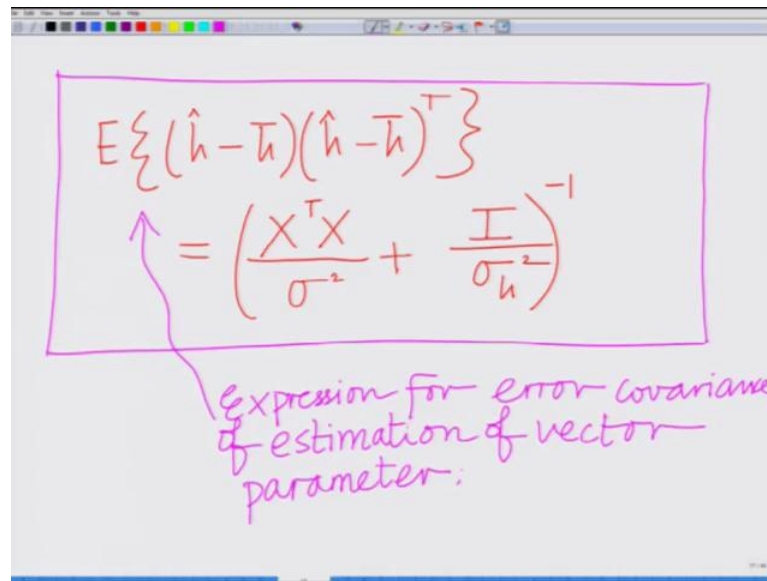 E{(ĥ - h̄)(ĥ - h̄)ᵀ}
= (XᵀX/σ² + I/σₕ²)⁻¹
Expression for error covariance
of estimation of vector
parameter.